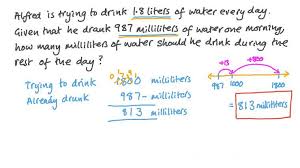 Alfred is trying to drink 1.8 liters of water every day.
Given that he drank 987 milliliters of water one morning,
how many milliliters of water should he drink during the
rest of the day?
Trying to drink 1800 milliliters
Already drunk 987 - milliliters
813 milliliters
+13 +800
987 1000 1800
= 813 milliliters